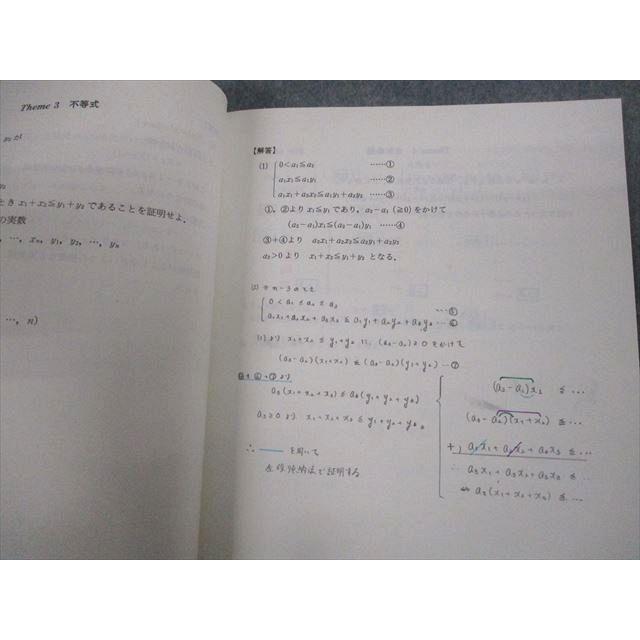 Theme 3 不等式
y₂が
y₂
とき x₁+x₂≦y₁+y₂ であることを証明せよ.
の実数
, …, xₙ, y₁, y₂, …, yₙ
…, n)
【解答】
(1) 0<a₁≦a₂ ……①
a₁x₁≦a₁y₁ ……②
a₁x₁+a₂x₂≦a₁y₁+a₂y₂ ……③
①, ②より x₁≦y₁ であり, a₂-a₁ (≧0) をかけて
(a₂-a₁)x₁≦(a₂-a₁)y₁ ……④
③+④より a₂x₁+a₂x₂≦a₂y₁+a₂y₂
a₂>0より x₁+x₂≦y₁+y₂ となる.
(2) n=3のとき
0<a₁≦a₂≦a₃ …⑤
a₁x₁+a₂x₂+a₃x₃≦a₁y₁+a₂y₂+a₃y₃ …⑥
(1)より x₁+x₂≦y₁+y₂ に (a₃-a₂)≧0をかけて
(a₃-a₂)(x₁+x₂)≦(a₃-a₂)(y₁+y₂) …⑦
+⑥+⑦より
a₃(x₁+x₂+x₃)≦a₃(y₁+y₂+y₃)
a₃≧0より x₁+x₂+x₃≦y₁+y₂+y₃
∴ を用いて
帰納法で証明する
(a₂-a₁)x₁ ≦…
(a₃-a₂)(x₁+x₂) ≦…
+) a₁x₁+a₂x₂+a₃x₃ ≦…
∴ a₃x₁+a₃x₂+a₃x₃ ≦…
⇔ a₃(x₁+x₂+x₃) ≦…